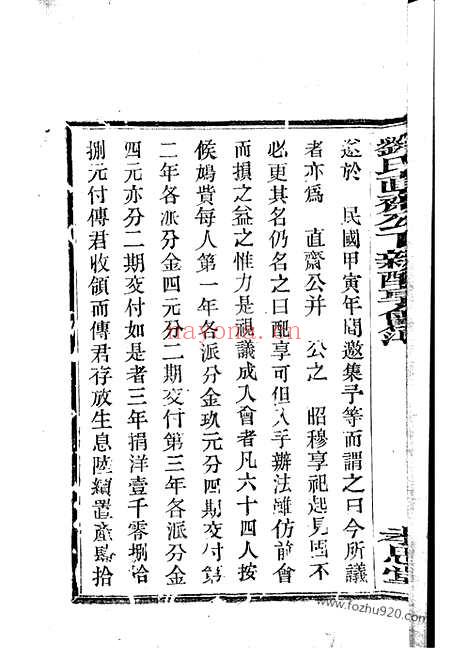 遂於　民國甲寅年間邀集予等而謂之曰今所議
者亦為　直齋公并　公之　昭穆享祀起見固不
必更其名仍名之曰配享可但入手辦法雖仿前會
而損之益之惟力是視議成入會者凡六十四人按
候鳩費每人第一年各派分金玖元分四期交付第
二年各派分金四元分二期交付第三年各派分金
四元亦分二期交付如是者三年捐洋壹千零捌拾
捌元付傳君收領而傳君存放生息陸續置產為拾
nayona.cn
www.fozhu920.com